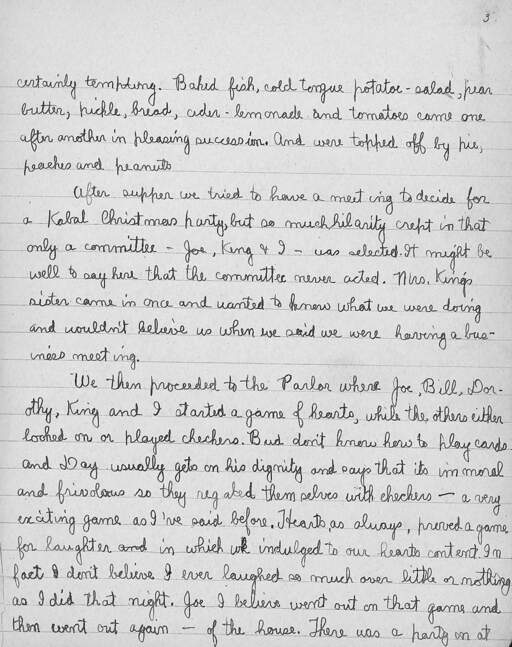 3
certainly tempting. Baked fish, cold tongue potatoe-salad, pear
butter, pickle, bread, cider-lemonade and tomatoes came one
after another in pleasing succession. And were topped off by pie,
peaches and peanuts
After supper we tried to have a meeting to decide for
a Kabal Christmas party, but so much hilarity crept in that
only a committee - Joe, King & I - was selected. It might be
well to say here that the committee never acted. Mrs. King's
sister came in once and wanted to know what we were doing
and wouldn't believe us when we said we were having a bus-
iness meeting.
We then proceeded to the Parlor where Joe, Bill, Dor-
othy, King and I started a game of hearts, while the others either
looked on or played checkers. Bud don't know how to play cards
and Day usually gets on his dignity and says that its immoral
and frivolous so they regaled themselves with checkers — a very
exciting game as I've said before. Hearts, as always, proved a game
for laughter and in which we indulged to our hearts content. In
fact I don't believe I ever laughed so much over little or nothing
as I did that night. Joe I believe went out on that game and
then went out again — of the house. There was a party on at